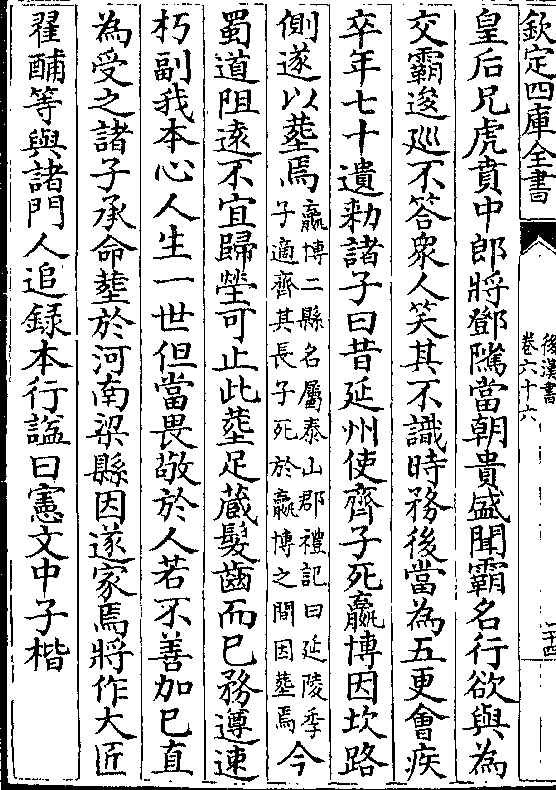 欽定四庫全書
後漢書
卷六十六
二十四
皇后兄虎賁中郎將鄧隲當朝貴盛聞霸名行欲與為
交霸逡廵不答衆人笑其不識時務後當為五更會疾
卒年七十遺勑諸子曰昔延州使齊子死嬴博因坎路
側遂以塟焉嬴博二縣名屬泰山郡禮記曰延陵季
子適齊其長子死於嬴博之間因塟焉今
蜀道阻遠不宜歸塋可止此塟足蔵髮齒而已務遵速
朽副我本心人生一世但當畏敬於人若不善加已直
為受之諸子承命塟於河南梁縣因遂家焉將作大匠
翟酺等與諸門人追録本行諡曰憲文中子楷